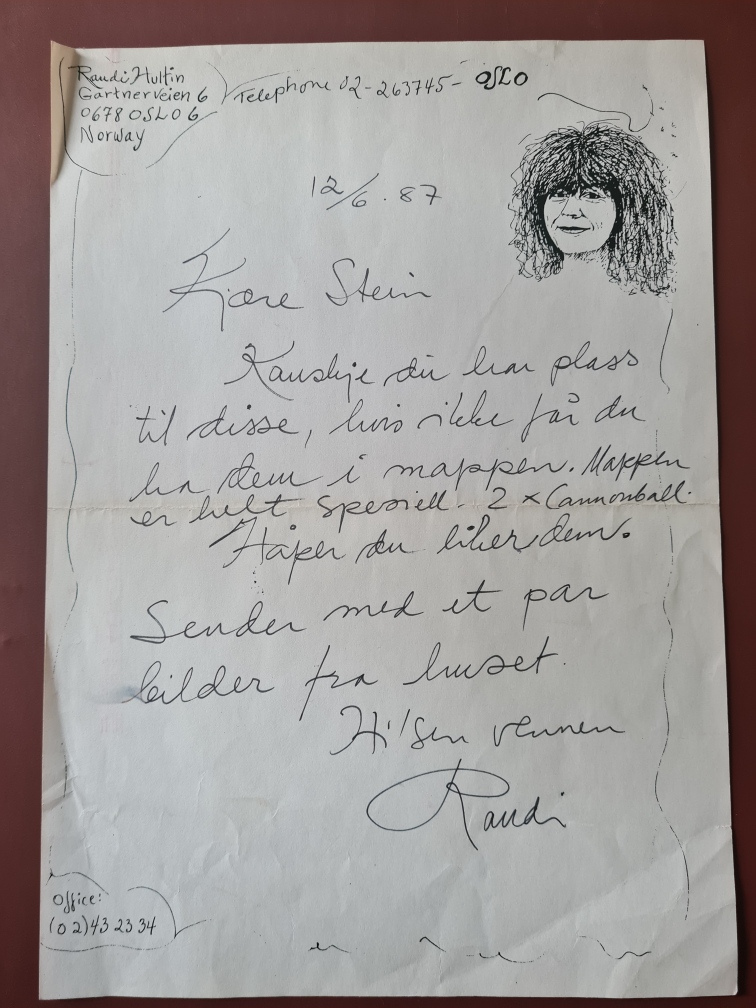 Randi Hultin
Gartnerveien 6
0678 OSLO 6
Norway
Telephone 02-263745- OSLO
12/6.87
Kjære Stein
Kanskje du har plass
til disse, hvis ikke får du
ha dem i mappen. Mappen
er helt spesiell. 2 x Cannonball.
Håper du liker dem.
Sender med et par
bilder fra huset.
Hilsen vennen
Randi
Office:
(02)43 23 34